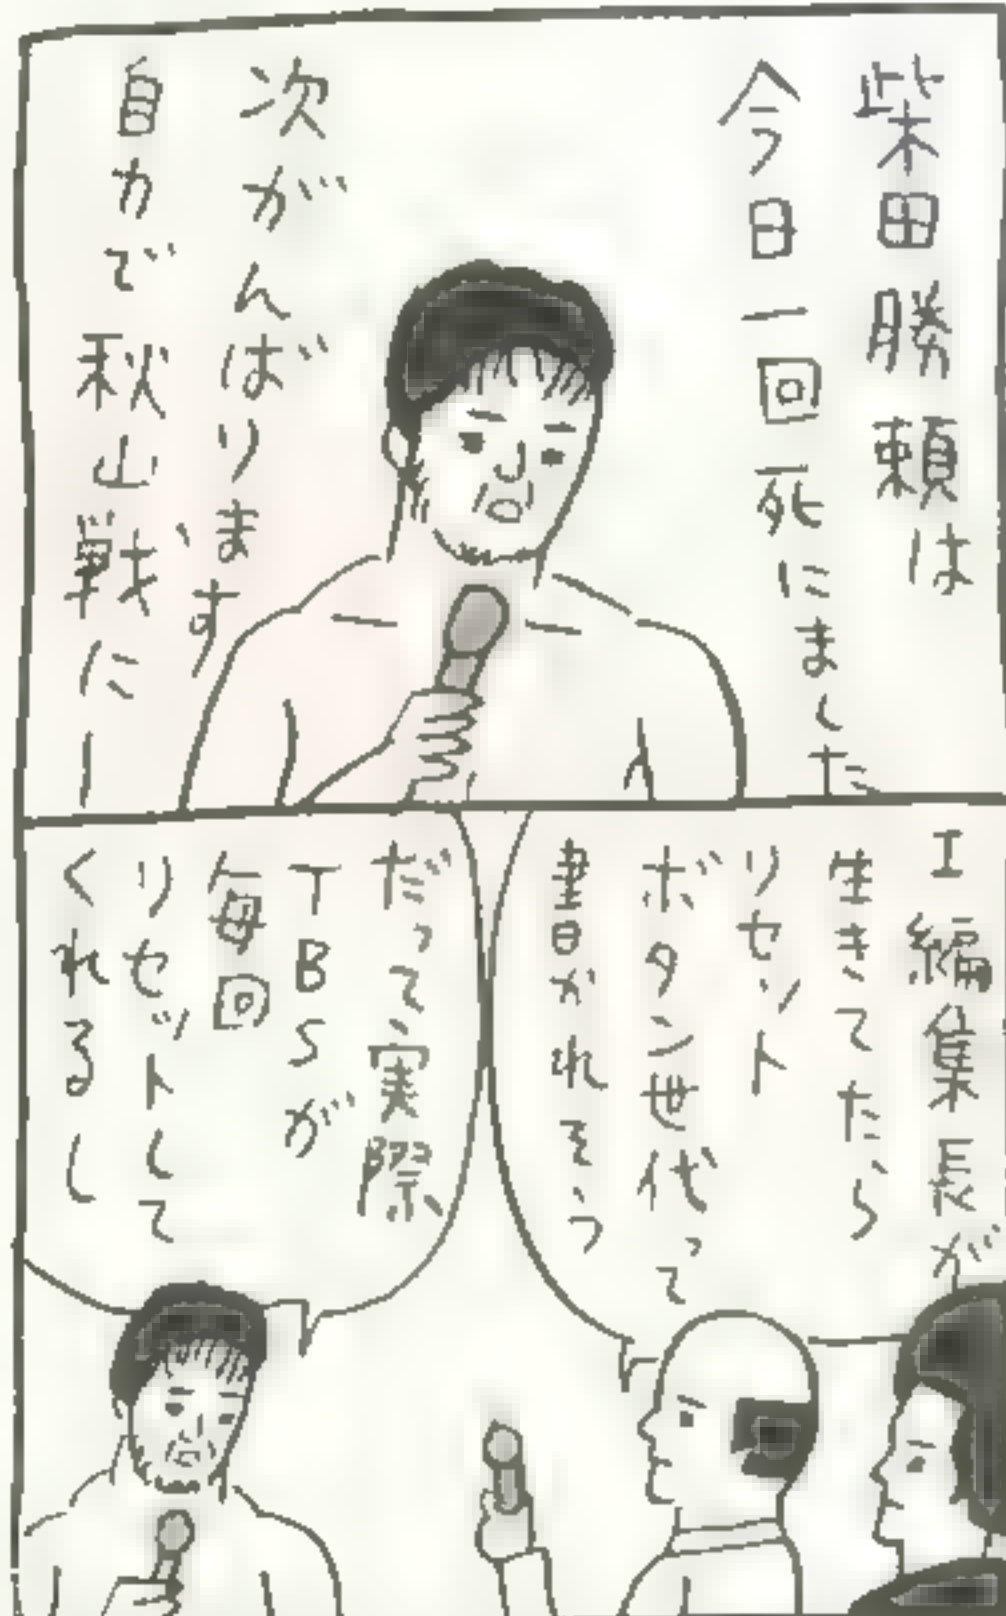 柴田勝頼は
今日一回死にました
次がんばります
自力で秋山戦に―
I編集長が
生きてたら
リセット
ボタン世代って
書かれそう
だって、実際
TBSが
毎回
リセットして
くれるし